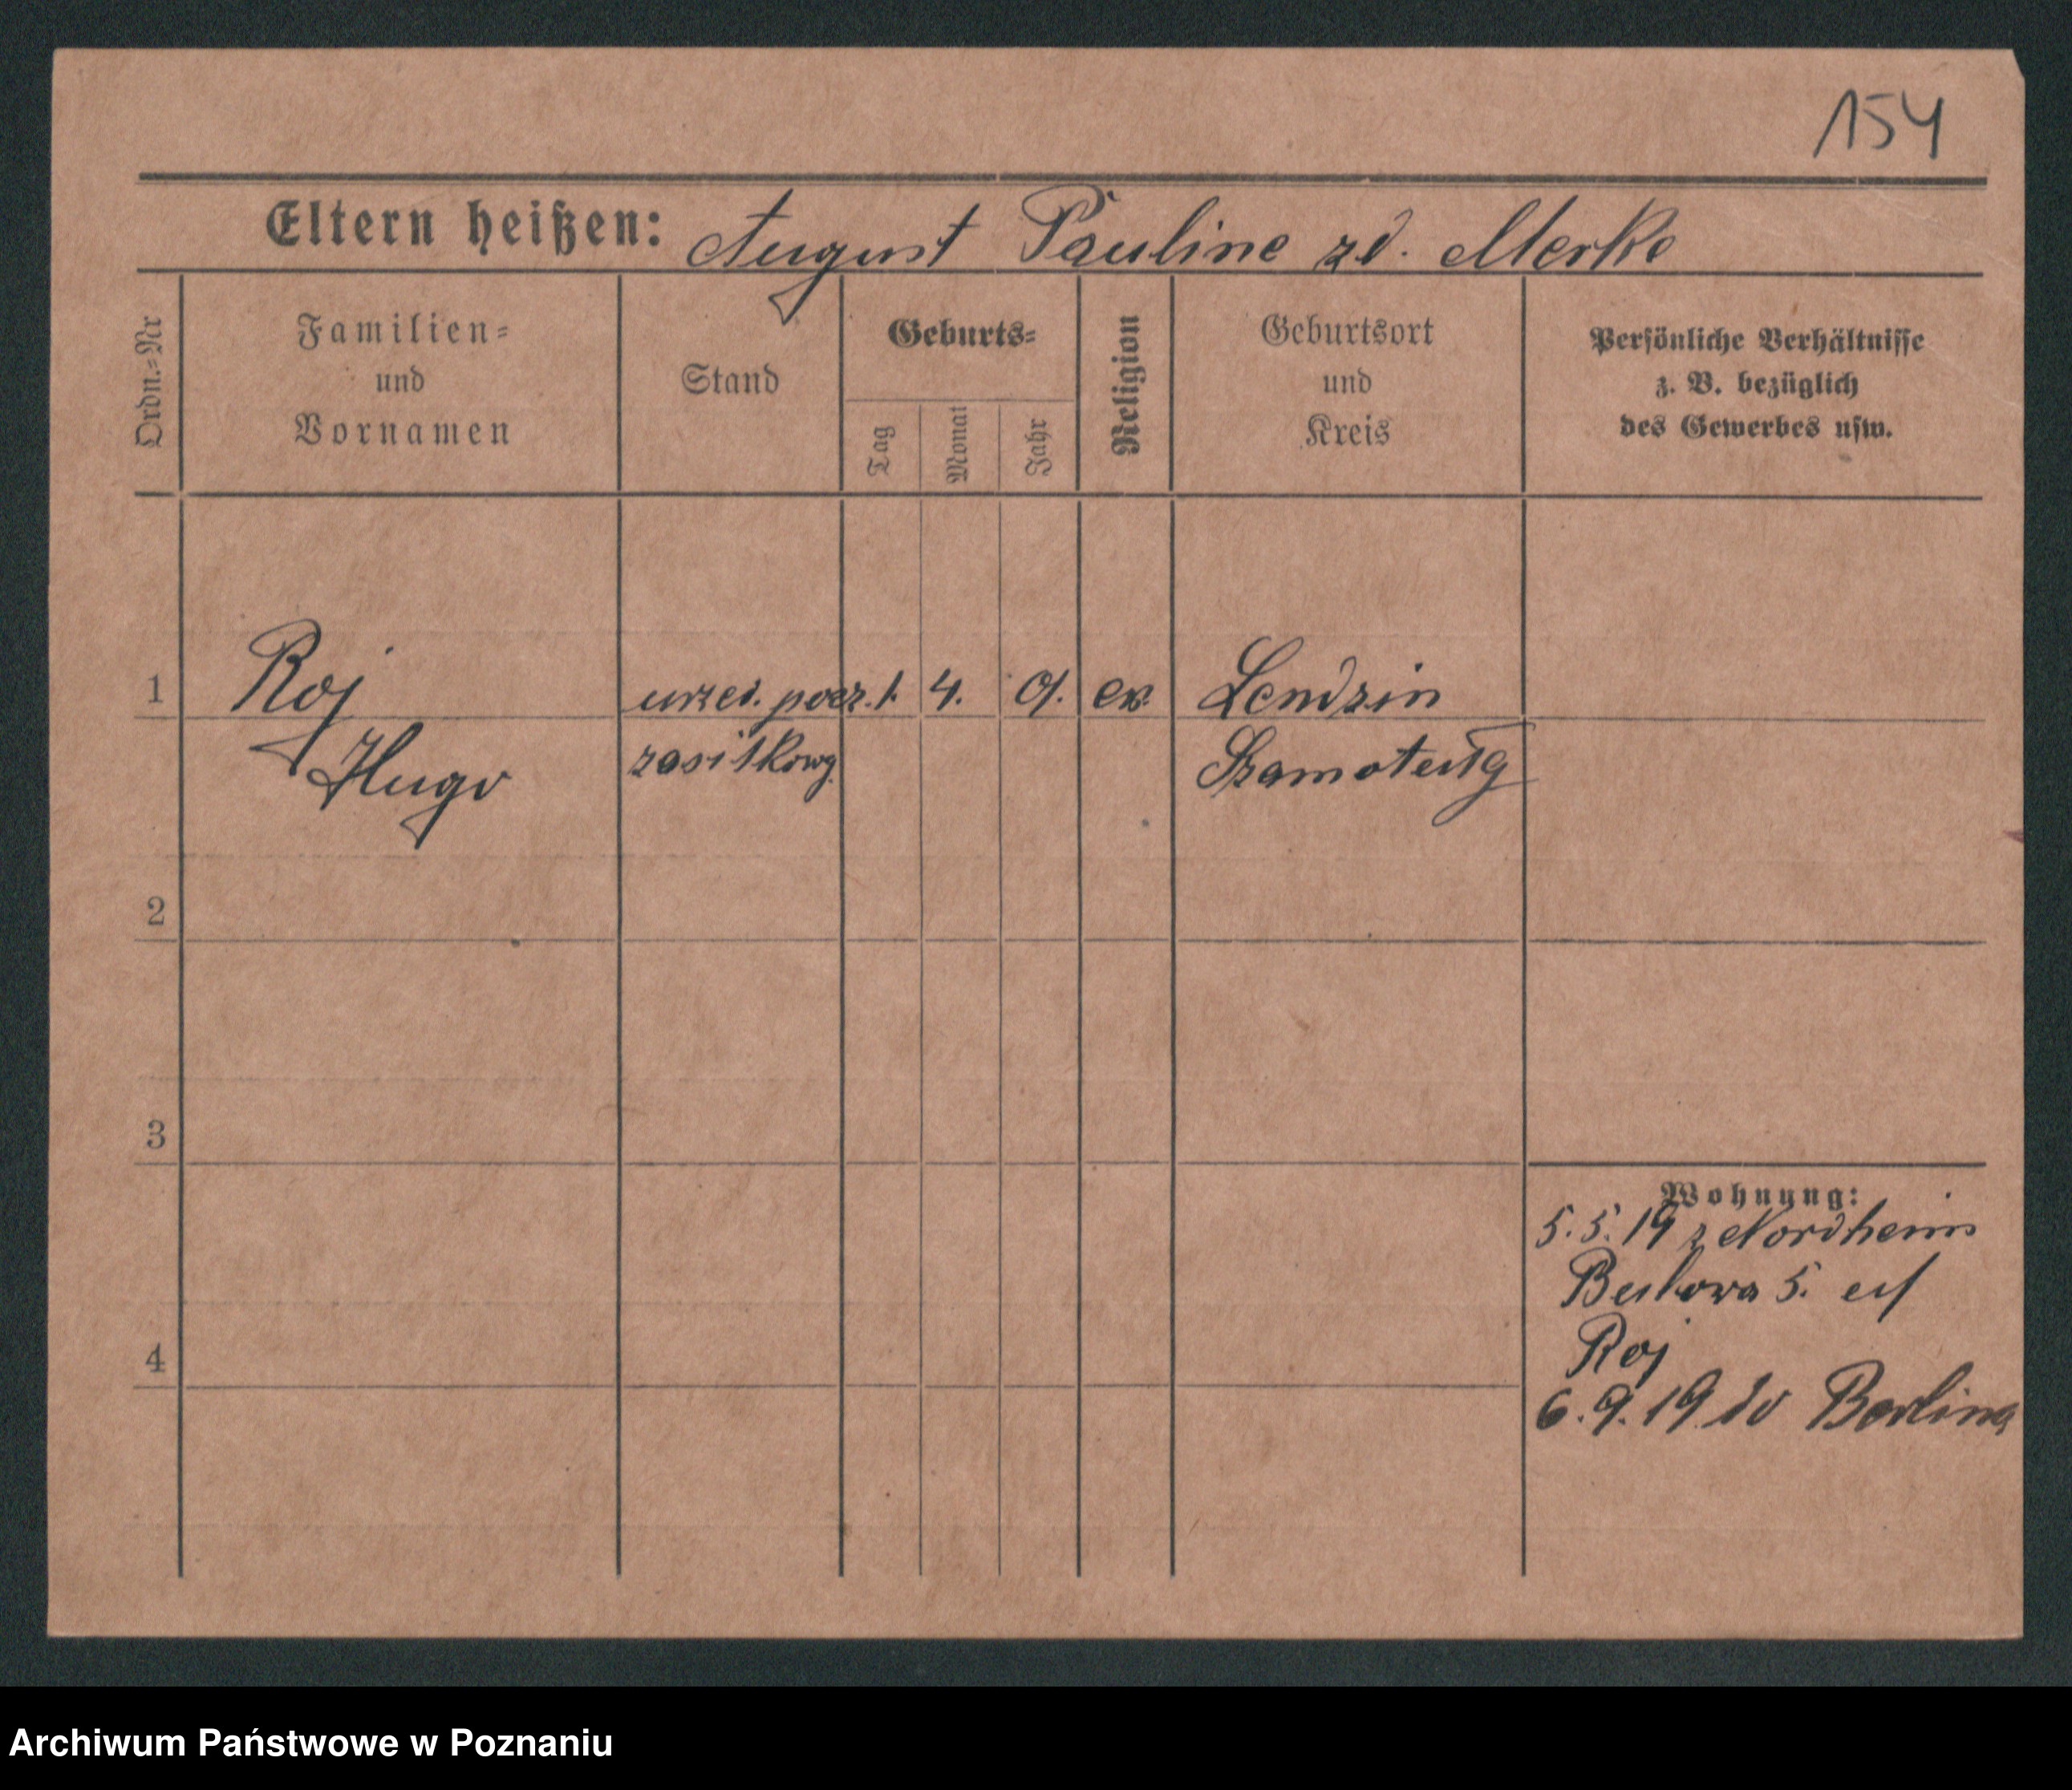 154
Eltern heißen: August Pauline zd. Merke
Ordn.=Nr
Familien=
und
Vornamen
Stand
Geburts=
Tag
Monat
Jahr
Religion
Geburtsort
und
Kreis
Persönliche Verhältnisse
z. B. bezüglich
des Gewerbes usw.
1 Roj urzęd. pocz. 1. 4. 01. ew. Lendzin
Hugo zasiłkowy Szamotuły
2
3
Wohnung:
5. 5. 19 z Nordheim
5. u/
Roj
4
6. 9. 19 do Berlina
Archiwum Państwowe w Poznaniu